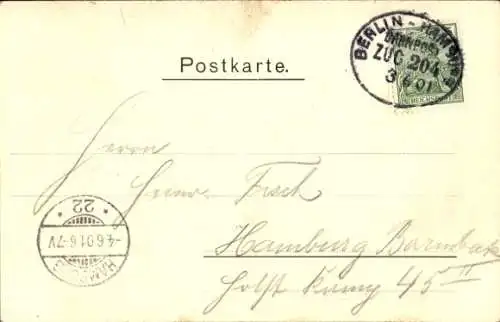 Postkarte.
BERLIN - HAMBURG
BAHNPOST
ZUG 204
3 6 01
REICHSPOST
Herrn
Frisch
Hamburg Barmbek
Holst Kamp 45 II
* 22 *
-4.6.01.6-7V
HAMBURG